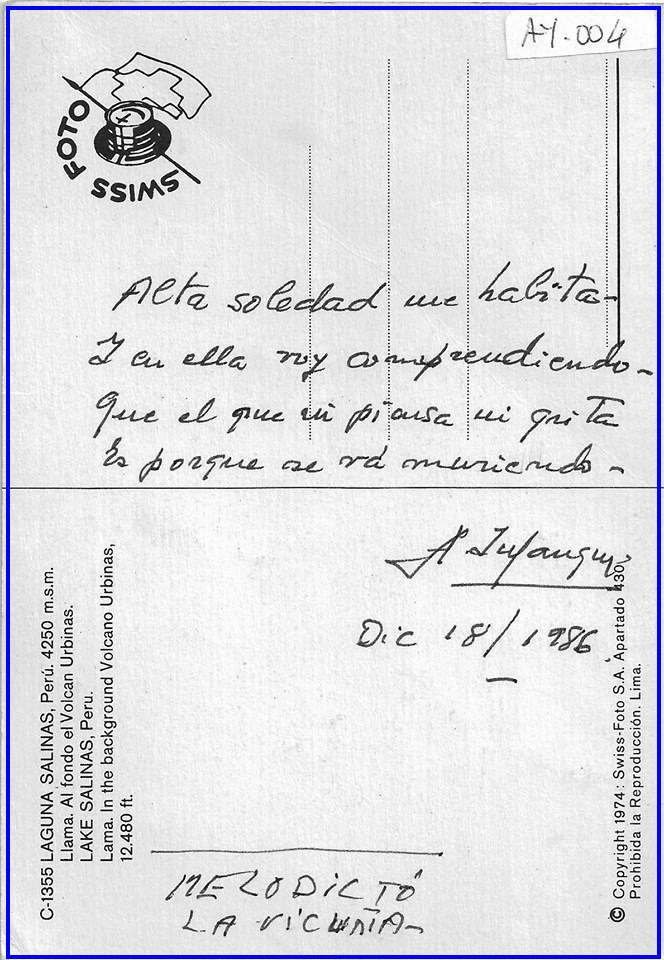 AY-004
SWISS FOTO
Alta soledad me habita-
Y en ella voy comprendiendo-
Que el que ni piensa ni grita
Es porque se va muriendo-
A. Yupanqui
Dic 18/1986
C-1355 LAGUNA SALINAS, Perú. 4250 m.s.m.
Llama. Al fondo el Volcan Urbinas.
LAKE SALINAS, Peru.
Lama. In the background Volcano Urbinas,
12.480 ft.
© Copyright 1974: Swiss-Foto S.A. Apartado 430
Prohibida la Reproducción. Lima.
ME LO DICTÓ
LA VICUÑA-